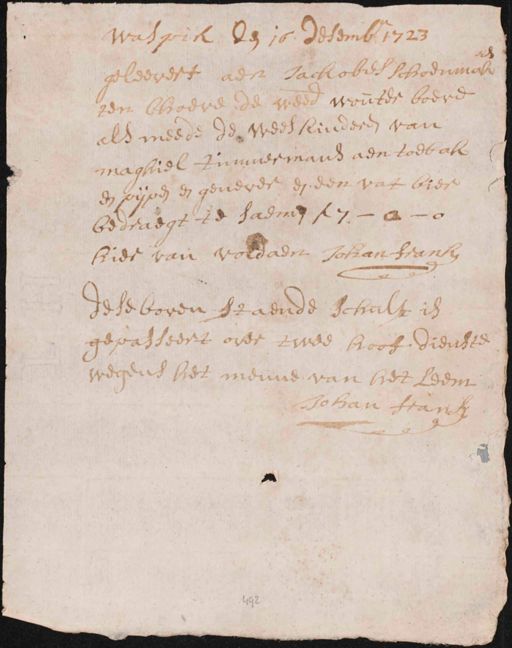 Waspik Den 16 desemb 1723
geleevert aen Jackobes Schoenmak
ten behoeve de weed wouter boere
als meede de weeskinders van
maghiel timmermans aen toebak
en pijpen en genever en een vat bier
bedraegt te saemen f 7 - a - 0
hier van voldaen Johan frank
dese boven staende schult is
gepasseert over twee hoof dienste
wegens het menne van het Leem
Johan frank
492